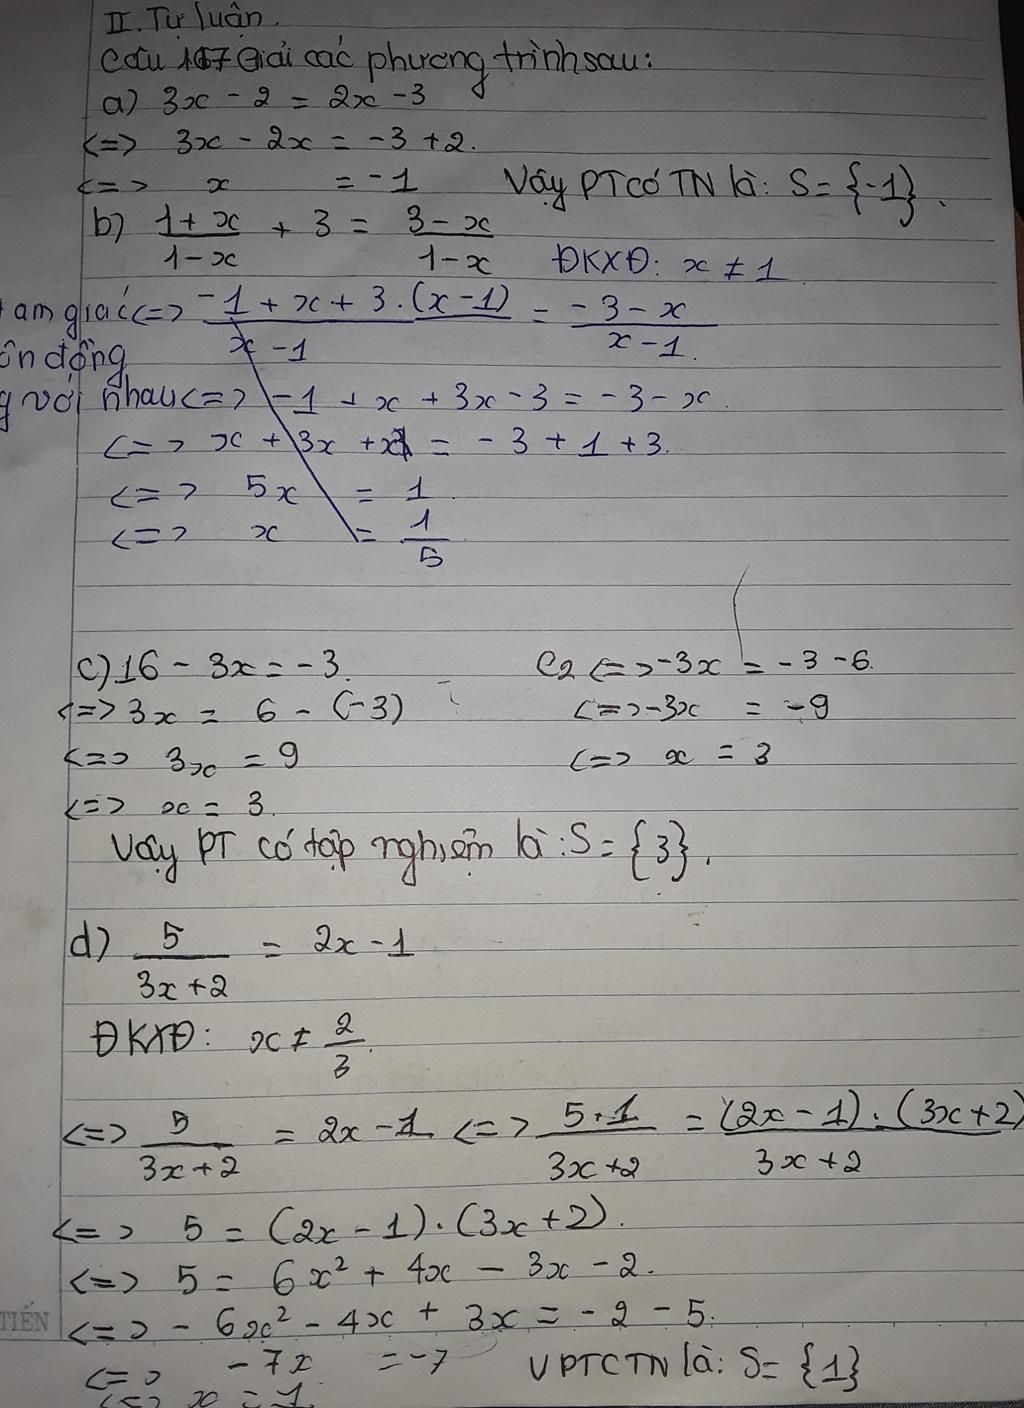 II. Tự luận.
Câu 167 Giải các phương trình sau:
a) 3x - 2 = 2x - 3
<=> 3x - 2x = -3 + 2.
<=> x = -1 Vậy PT có TN là: S = {-1}.
b) \frac{1+x}{1-x} + 3 = \frac{3-x}{1-x} ĐKXĐ: x ≠ 1
am giác <=> \frac{-1+x+3.(x-1)}{x-1} = \frac{-3-x}{x-1}.
ôn động
g với nhau <=> -1 + x + 3x - 3 = -3 - x.
<=> x + 3x + x = -3 + 1 + 3.
<=> 5x = 1.
<=> x = \frac{1}{5}
c) 16 - 3x = -3. C2 <=> -3x = -3 - 6.
<=> 3x = 6 - (-3) <=> -3x = -9
<=> 3x = 9 <=> x = 3
<=> x = 3.
Vậy PT có tập nghiệm là: S = {3}.
d) \frac{5}{3x+2} = 2x - 1
ĐKXĐ: x ≠ \frac{2}{3}.
<=> \frac{5}{3x+2} = 2x - 1 <=> \frac{5.1}{3x+2} = \frac{(2x-1).(3x+2)}{3x+2}
<=> 5 = (2x - 1).(3x + 2).
<=> 5 = 6x² + 4x - 3x - 2.
TIẾN
<=> -6x² - 4x + 3x = -2 - 5.
<=> -7x = -7 VPTCTN là: S = {1}
<=> x = 1.